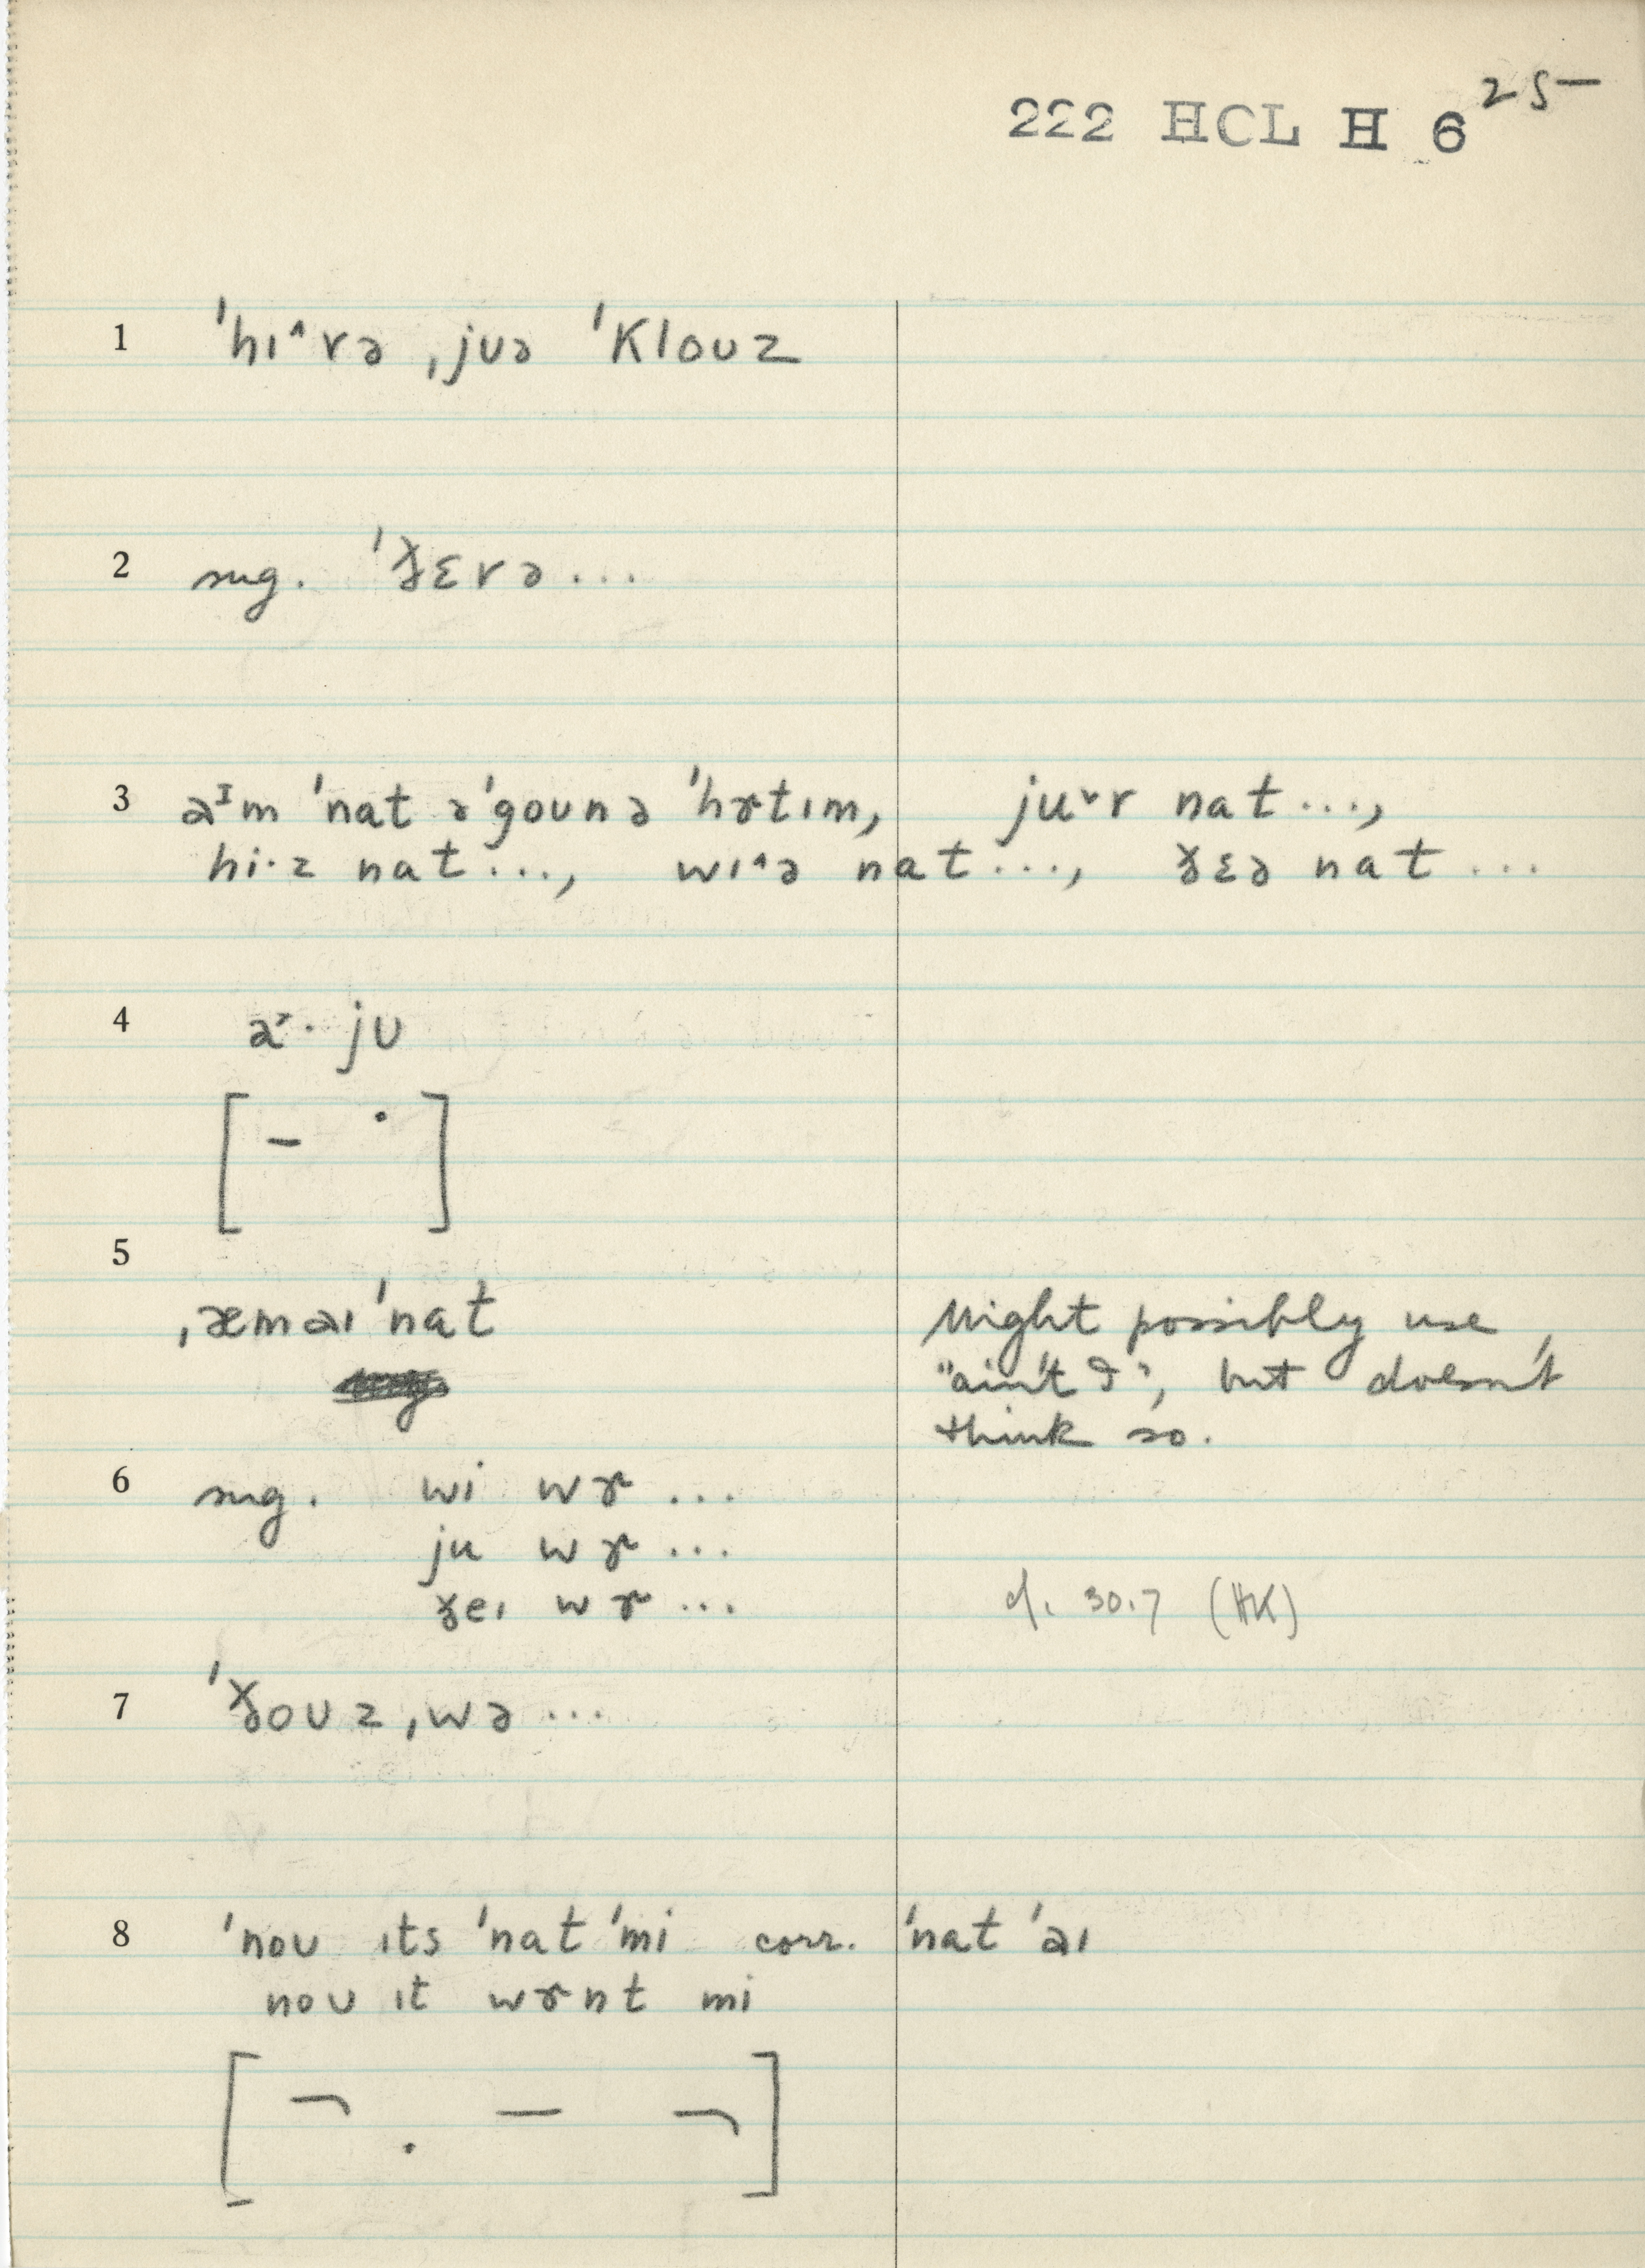 25
222 HCL H 6
1 ˈhɪ^rə ˌjʊə ˈklouz
2 sug. ˈðɛrə...
3 aᴵm ˈnat əˈgoʊnə ˈhɝtɪm, ju˅r nat...,
hi·z nat..., wɪ^ə nat..., ðɛə nat...
4 a˞· jʊ
[ – · ]
5
ˌæmaɪˈnat Might possibly use
"ain't I", but doesn't
think so.
6 sug. wi wɝ...
ju wɝ...
ðeɪ wɝ... cf. 30.7 (HK)
7 ˈðoʊz ˌwə...
8 ˈnoʊ ɪts ˈnat ˈmi corr. ˈnat ˈaɪ
noʊ ɪt wɝnt mi